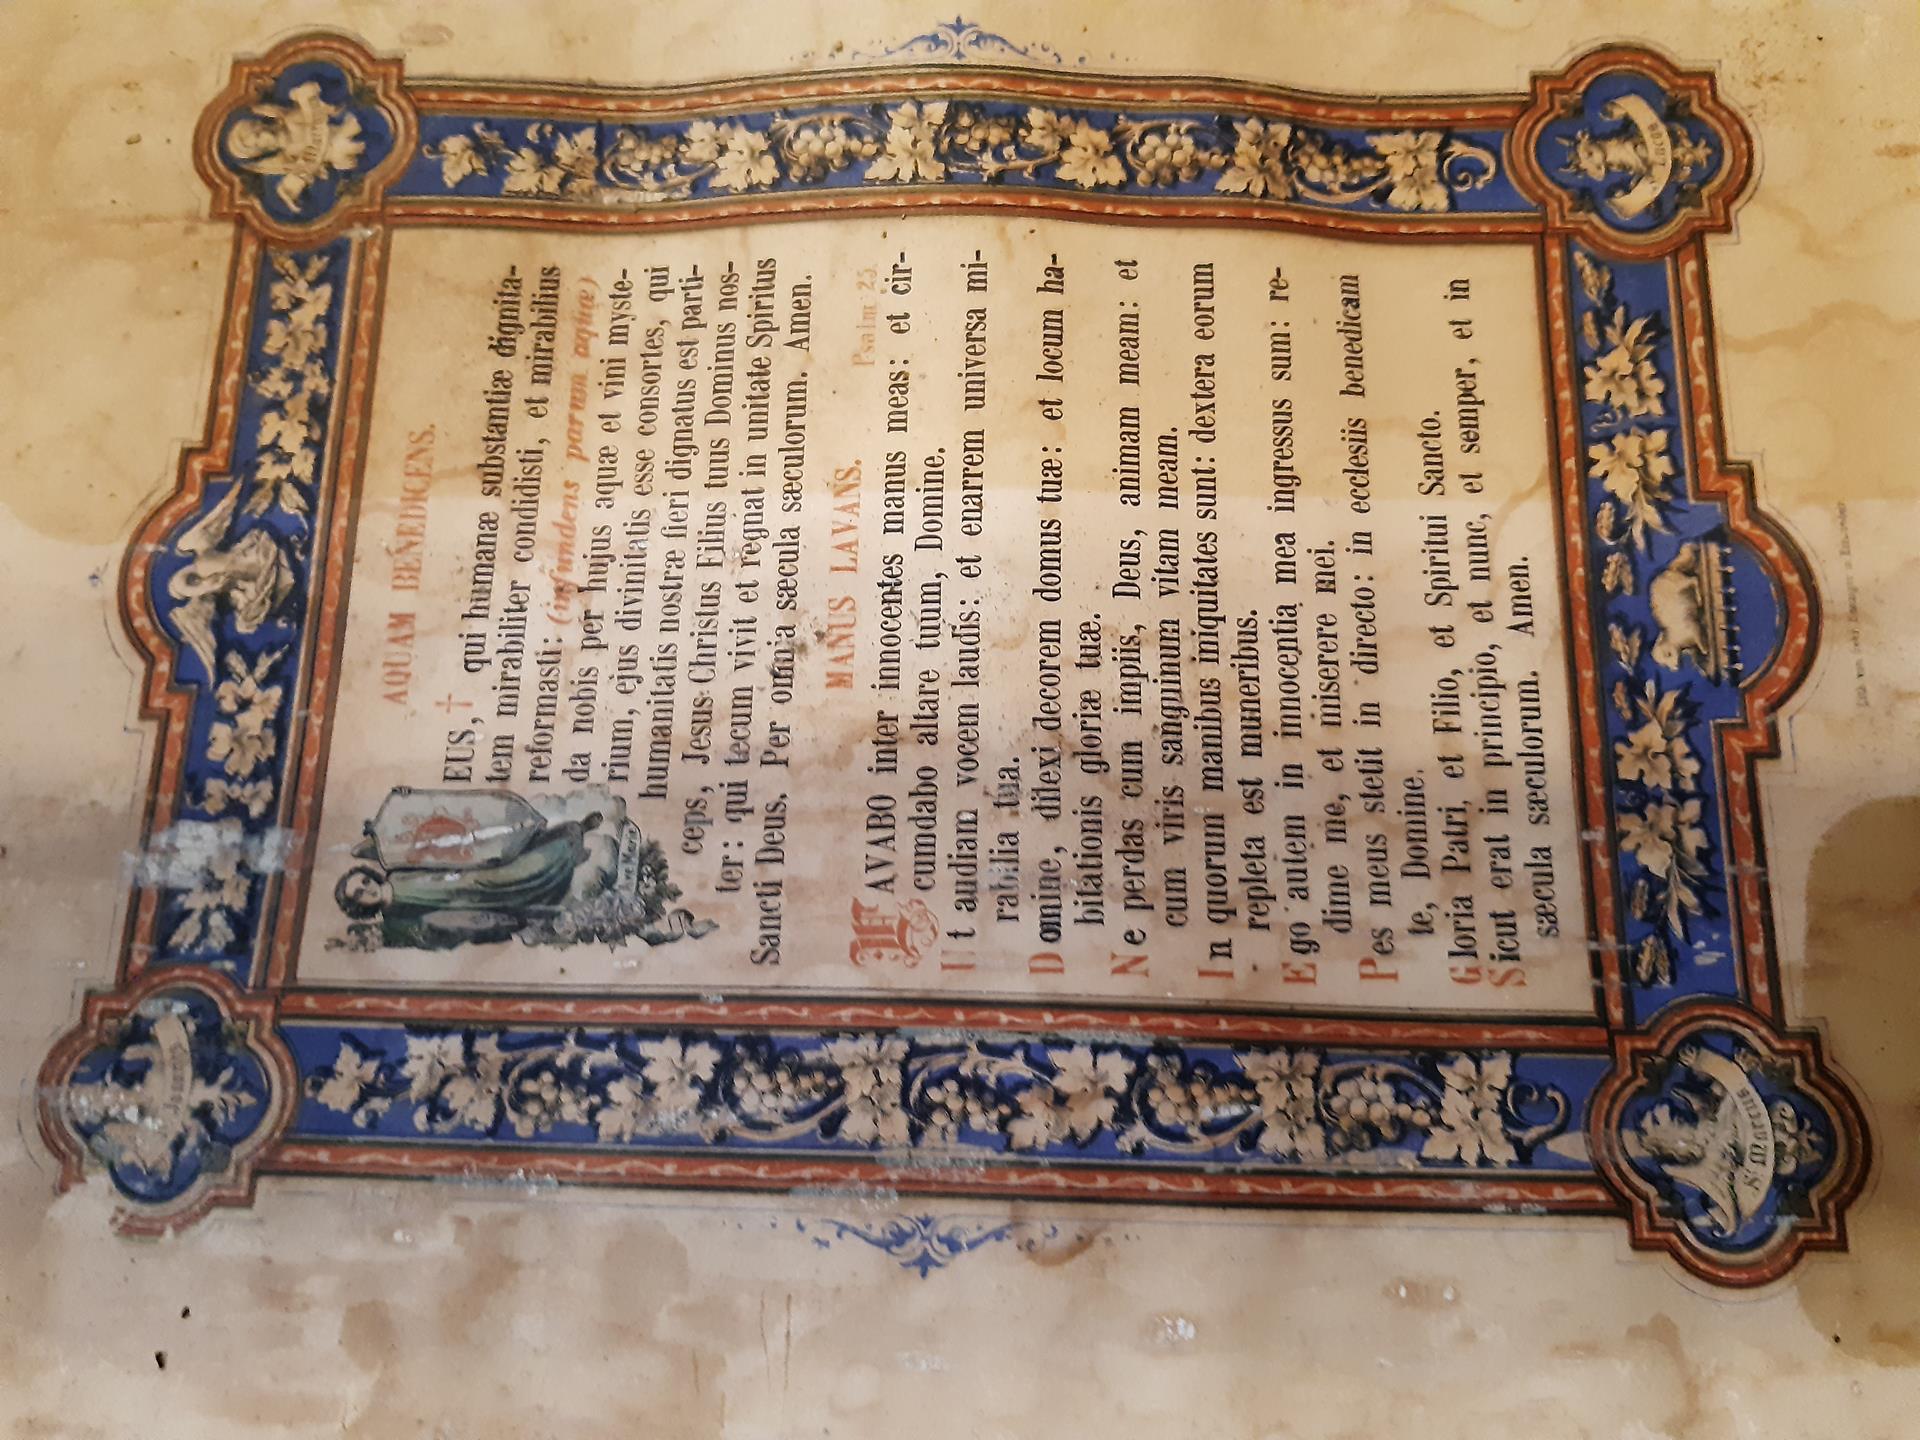 AQUAM BENEDICENS.
EUS, † qui humanæ substantiæ dignita-
tem mirabiliter condidisti, et mirabilius
reformasti: (infundens parum aquæ)
da nobis per hujus aquæ et vini myste-
rium, ejus divinitatis esse consortes, qui
humanitatis nostræ fieri dignatus est parti-
ceps, Jesus Christus Filius tuus Dominus nos-
ter: qui tecum vivit et regnat in unitate Spiritus
Sancti Deus. Per omnia sæcula sæculorum. Amen.
Ave Maria
MANUS LAVANS.
Psalm 25.
LAVABO inter innocentes manus meas: et cir-
cumdabo altare tuum, Domine.
Ut audiam vocem laudis: et enarrem universa mi-
rabilia tua.
Domine, dilexi decorem domus tuæ: et locum ha-
bitationis gloriæ tuæ.
Ne perdas cum impiis, Deus, animam meam: et
cum viris sanguinum vitam meam.
In quorum manibus iniquitates sunt: dextera eorum
repleta est muneribus.
Ego autem in innocentia mea ingressus sum: re-
dime me, et miserere mei.
Pes meus stetit in directo: in ecclesiis benedicam
te, Domine.
Gloria Patri, et Filio, et Spiritui Sancto.
Sicut erat in principio, et nunc, et semper, et in
sæcula sæculorum. Amen.
Lucas